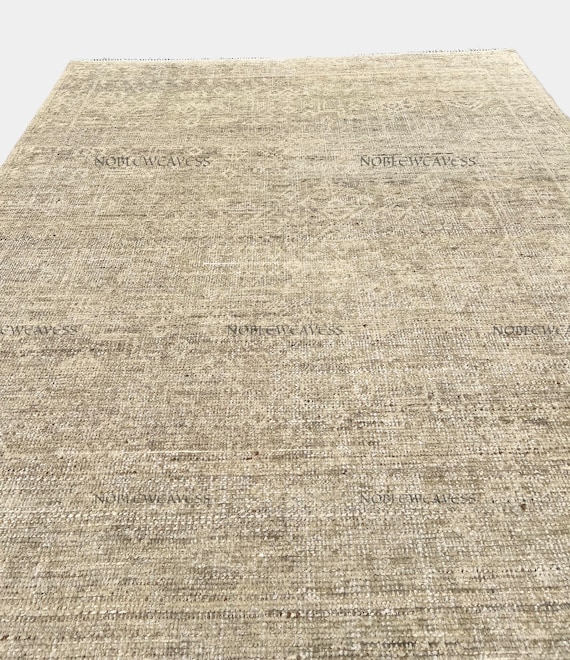 NOBLEWEAVESS NOBLEWEAVESS
WEAVESS NOBLEWEAVESS NOBLEWEA
NOBLEWEAVESS NOBLEWEAVESS